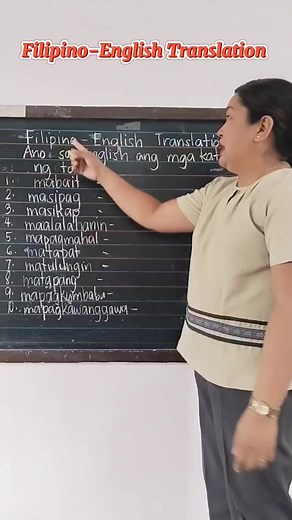 Filipino-English Translation
Filipino - English Translatio
Ano sa English ang mga kat
ng ta
1. mabait -
2. masipag -
3. masikap -
4. maalalahanin-
5. mapagmahal -
6. matapat -
7. matulungin -
8. matapang -
9. mapagkumbaba -
10. mapagkawanggawa -